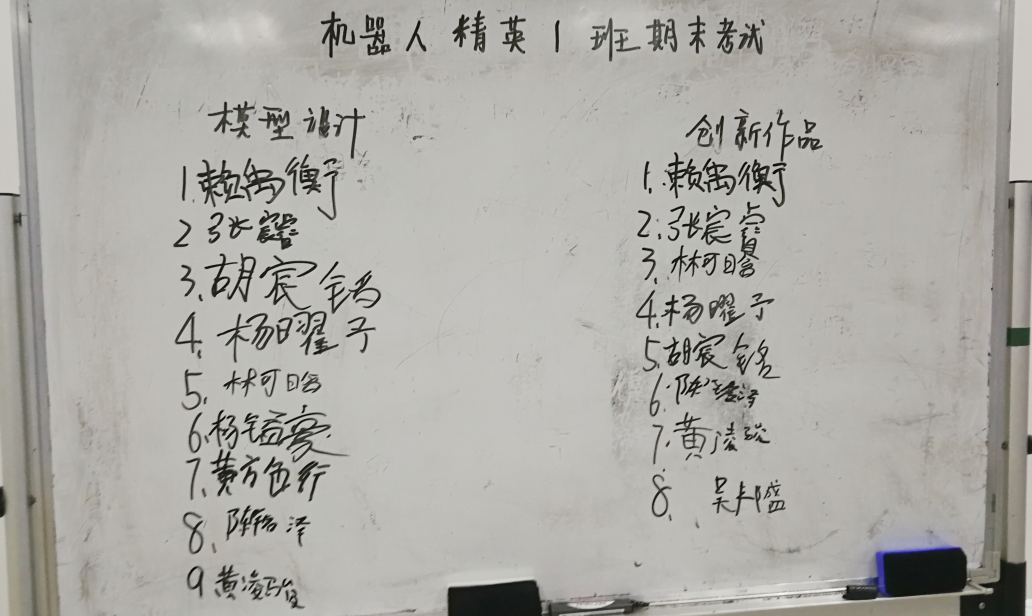 机器人精英1班期末考试
模型设计
1.赖禹衡
2 张宸睿
3.胡宸铭
4.杨曜予
5.林可晗
6.杨镒豪
7.黄方
8.陈 泽
9 黄凌骏
创新作品
1.赖禹衡
2.张宸睿
3.林可晗
4.杨曜予
5.胡宸铭
6.陈 泽
7.黄凌骏
8. 吴 盛